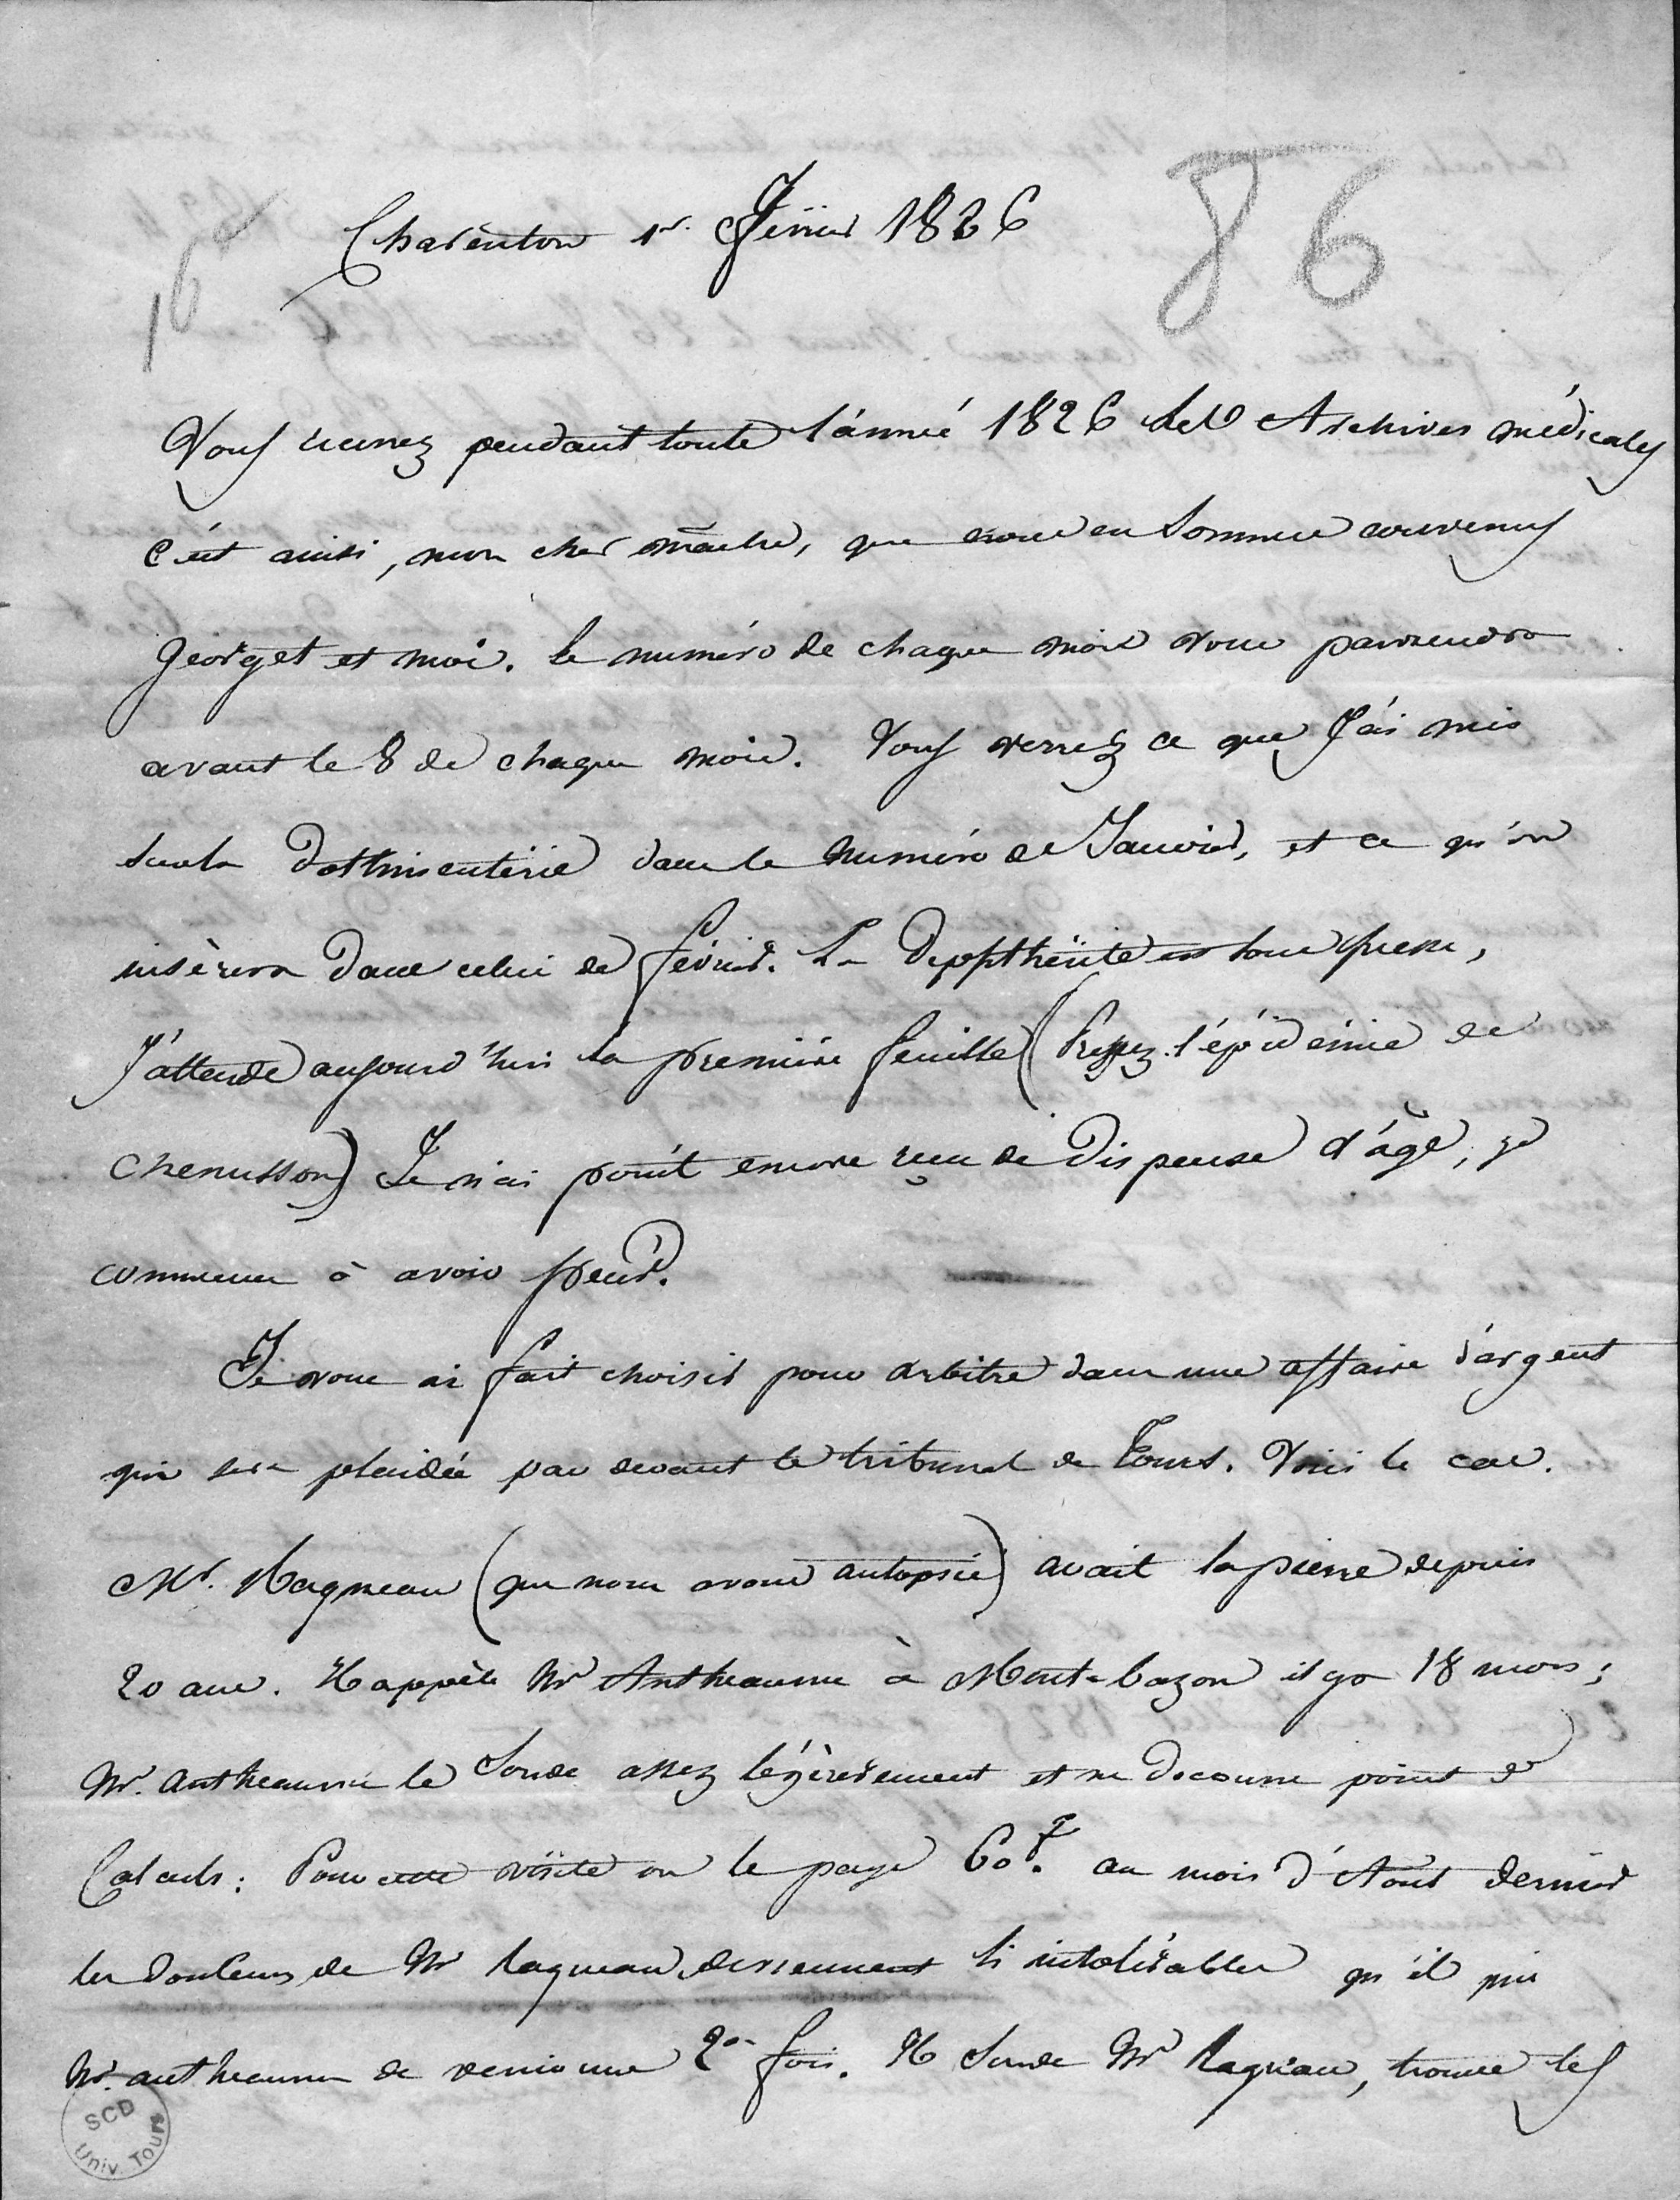 86
16
Charenton 1er. Février 1826
Vous recevrez pendant toute l'année 1826 les Archives médicales
c'est ainsi, mon cher maître, que nous en sommes convenus
Georget et moi. le numéro de chaque mois vous parviendra
avant le 8 de chaque mois. Vous verrez ce que J'ai mis
sur la Dothinentérie dans le numéro de Janvier, et ce qu'on
insèrera dans celui de février. La Dipphthérite est sous presse,
J'attends aujourd'hui la première feuille (Pressez l'épidémie de
Chenusson) Je n'ai point encore reçu de Dispense d'âge, je
commence à avoir peur.
Je vous ai fait choisir pour arbitre dans une affaire d'argent
qui sera plaidée par devant le tribunal de Tours. Voici le cas.
Mr. Ragneau (que nous avons autopsié) avait la pierre depuis
20 ans. Il appèle Mr Antheaume à Mont-bazon il y a 18 mois;
Mr. Antheaume le Sonde assez légèrement et ne découvre point de
Calculs: Pour cette visite on le paye 60f. au mois d'Août dernier
les douleurs de Mr Ragneau deviennent si intolérables qu'il prie
Mr. antheaume de venir une 2e fois. Il Sonde Mr Ragneau, trouve les
SCD
Univ. Tours